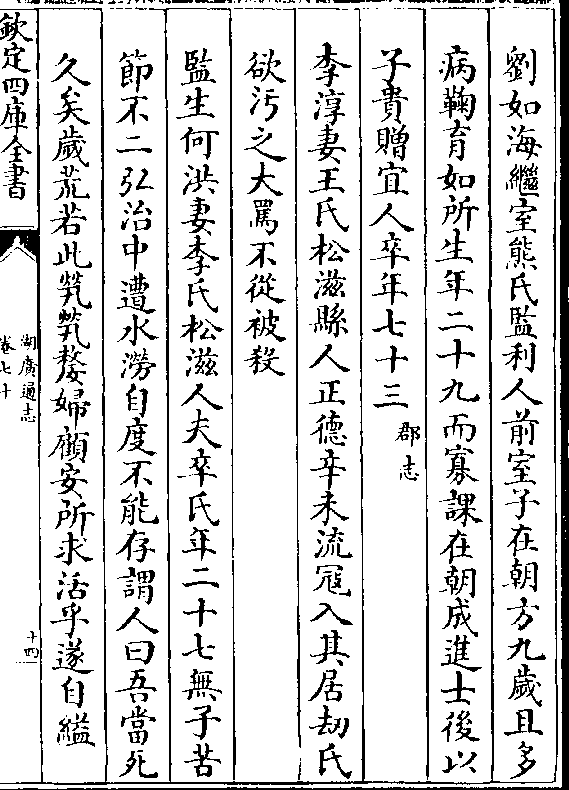 劉如海繼室熊氏監利人前室子在朝方九歲且多
病鞠育如所生年二十九而寡課在朝成進士後以
子貴贈宜人卒年七十三郡志
李淳妻王氏松滋縣人正德辛未流冦入其居劫氏
欲汚之大罵不從被殺
監生何洪妻李氏松滋人夫卒氏年二十七無子苦
節不二弘治中遭水澇自度不能存謂人曰吾當死
久矣歲荒若此煢煢嫠婦顧安所求活乎遂自縊
欽定四庫全書
湖廣通志
卷七十
十四